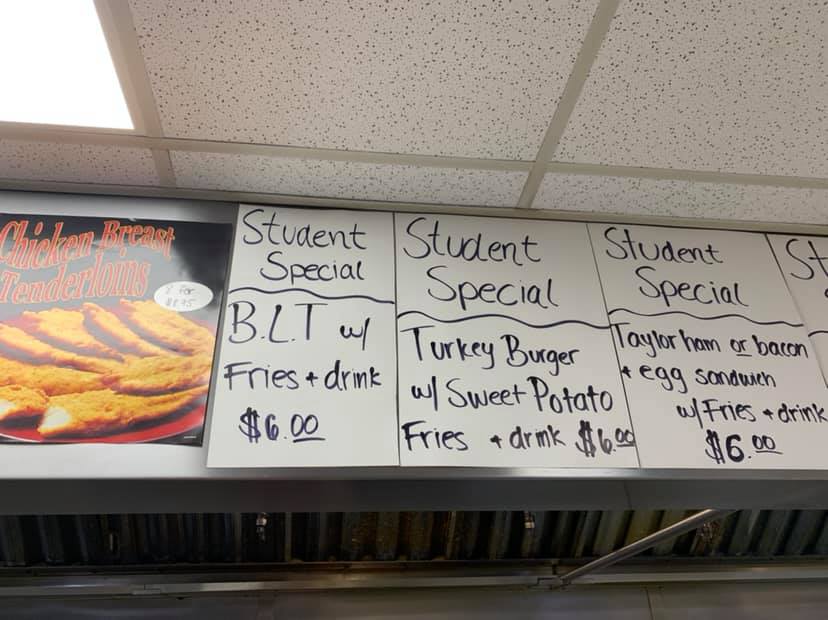 Chicken Breast
Tenderloins
8 for
$8.95
Student
Special
B.L.T w/
Fries + drink
$6.00
Student
Special
Turkey Burger
w/ Sweet Potato
Fries + drink $6.00
Student
Special
Taylor ham or bacon
+ egg sandwich
w/ Fries + drink
$6.00
St